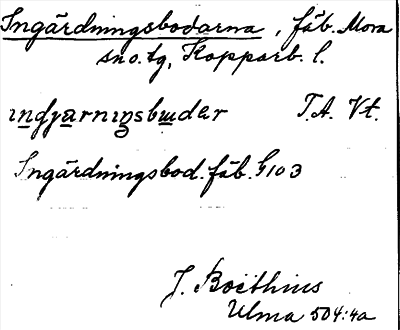 Ingärdningsbodarna, fäb. Mora
sno. tg, Kopparb. l.
T.A. Vt.
Ingärdningsbod. fäb. G103
J. Boëthius
Ulma 504:4a